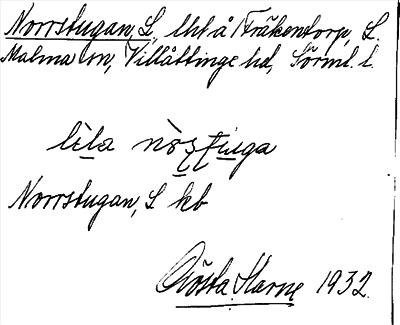 Norrstugan, L, lht å Fräkentorp, L.
Malma sn, Villåttinge hd, Sörml. l.
lìla nòʂʈuga
Norrstugan, L kb
Gösta Harne 1932.